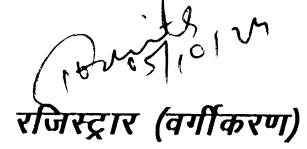 05/10/24
रजिस्ट्रार (वर्गीकरण)